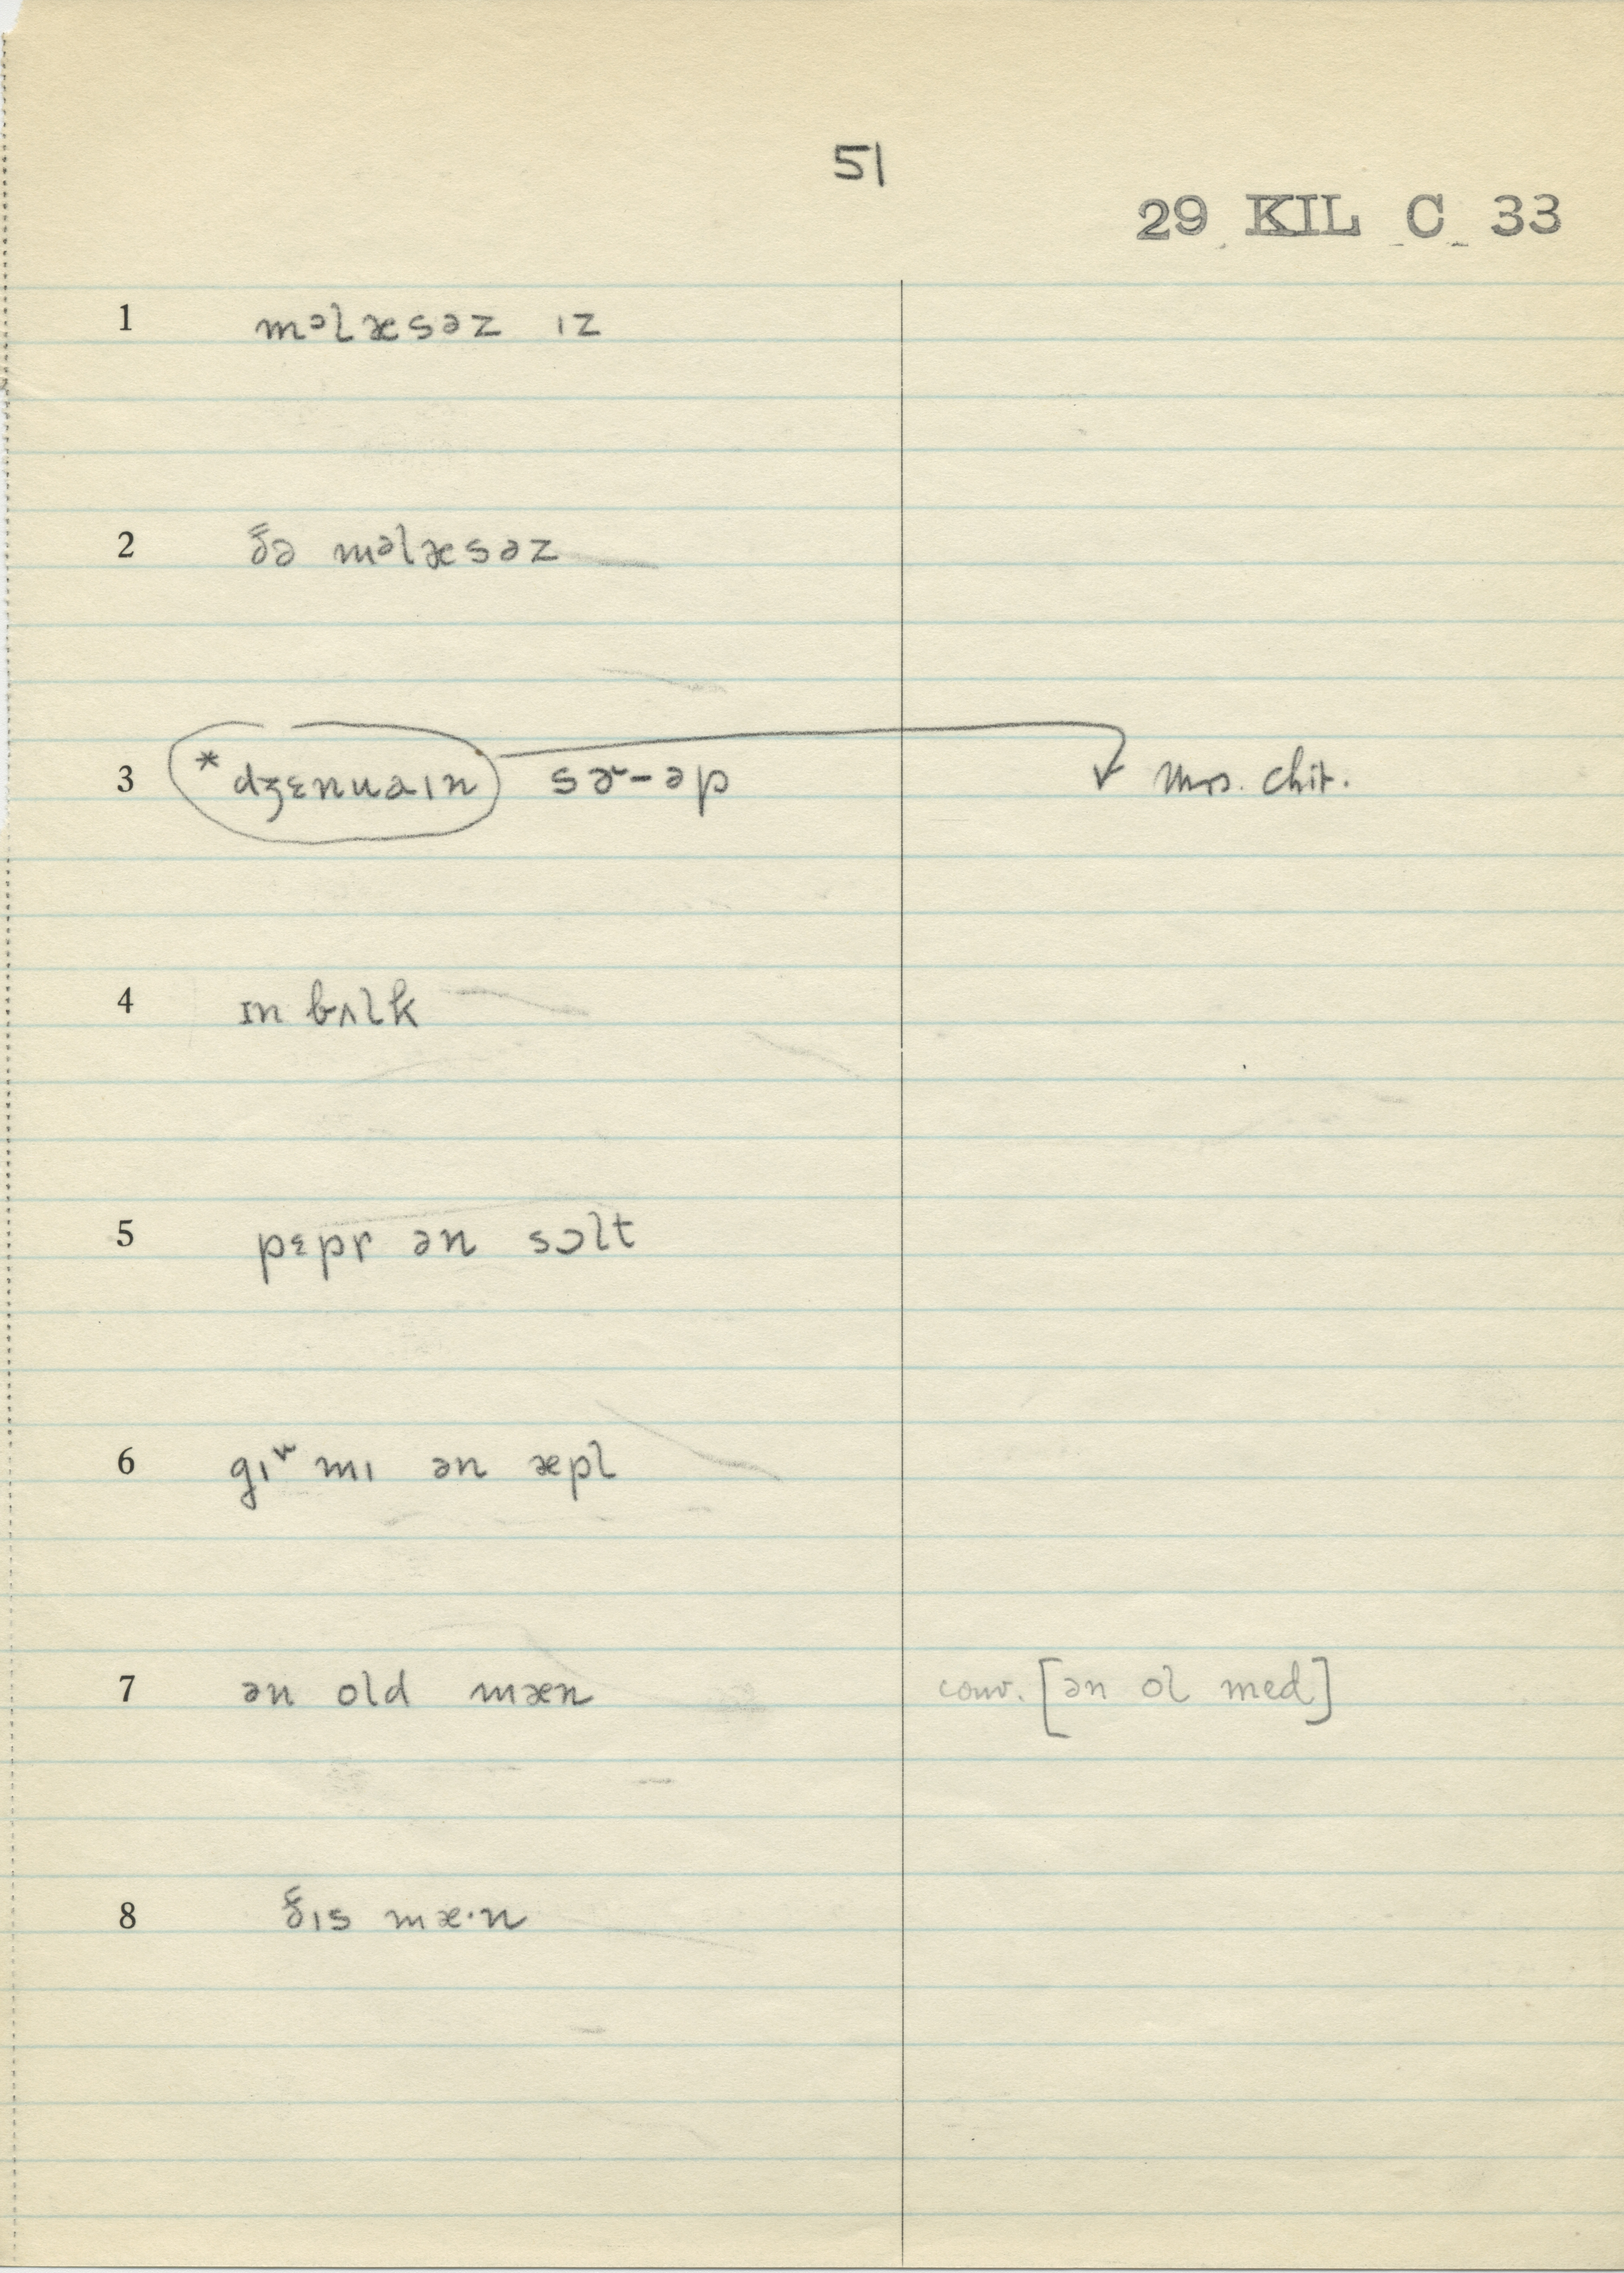 51
29 KIL C 33
1 məlæsəz ɪz
2 ðə məlæsəz
3 *dʒɛnuaɪn sɚ-əp mrs. chit.
4 ɪn bʌlk
5 pɛpr ən sɔlt
6 mɪ ən æpl
7 ən old mæn conv. [ən ol med]
8 ðɪs mæ·n